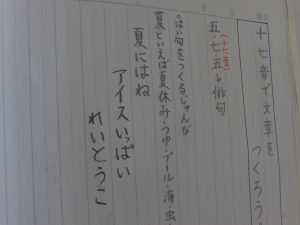 月
日
曜日
十七音で文章をつくろう。
(十七音)
五・七・五→俳句
◦はい句をつくるじゅんび
夏といえば夏休み・つゆ・プール・海・虫・
夏にはね
アイスいっぱい
れいとうこ